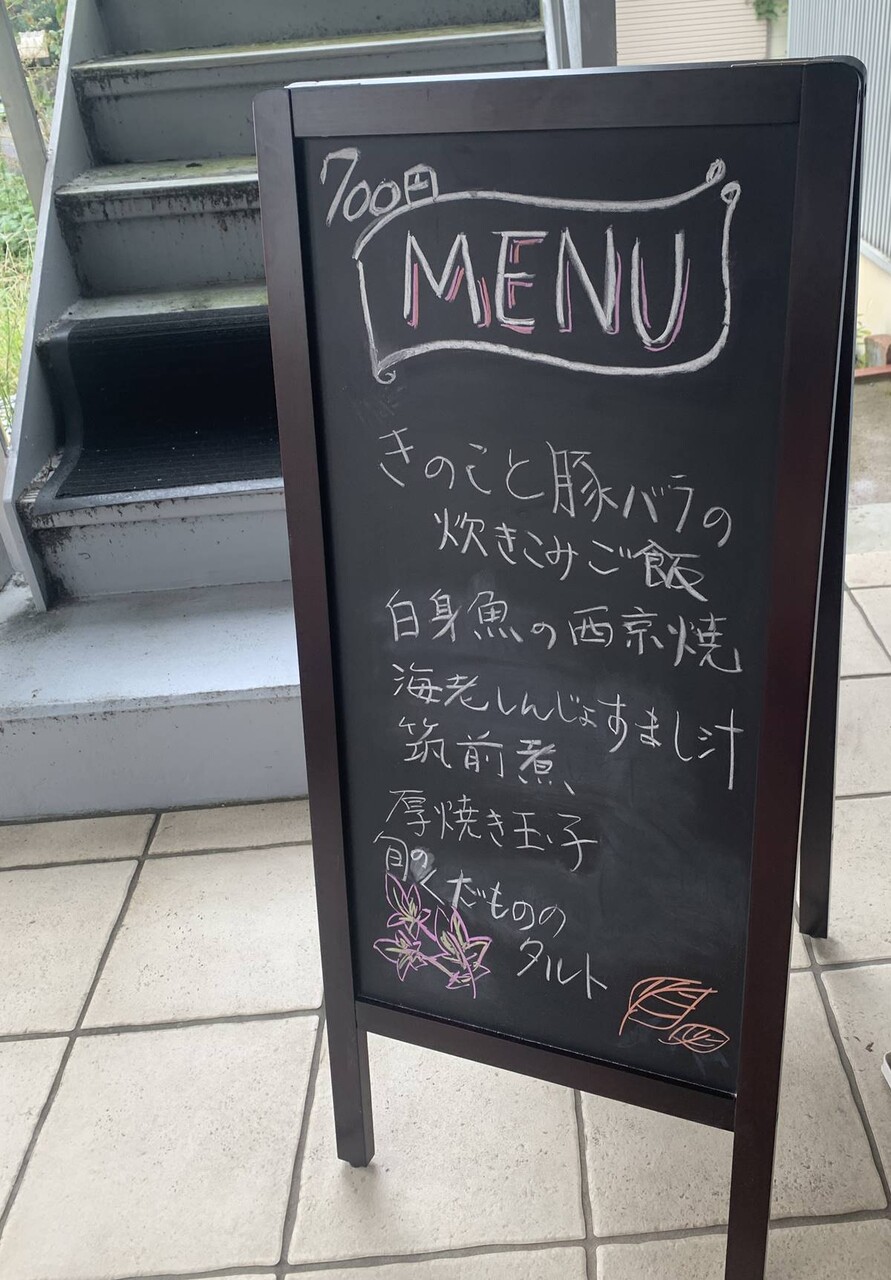 700円
MENU
きのこと豚バラの
炊きこみご飯
白身魚の西京焼
海老しんじょすまし汁
筑前煮、
厚焼き玉子
旬の
くだものの
タルト